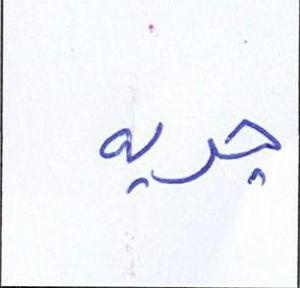 جريه